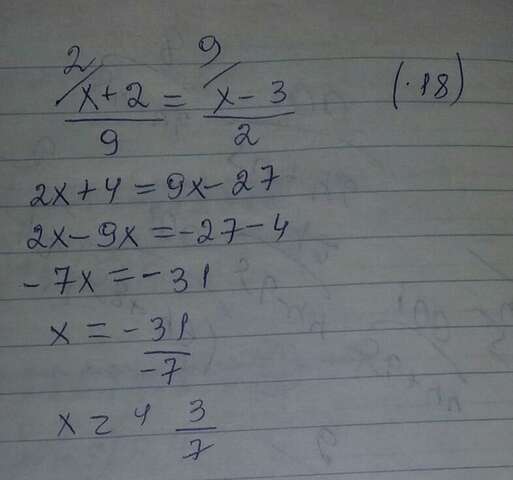 2 9
x+2 = x-3 (·18)
9 2
2x+4=9x-27
2x-9x=-27-4
-7x=-31
x=-31
-7
x=4 3
7